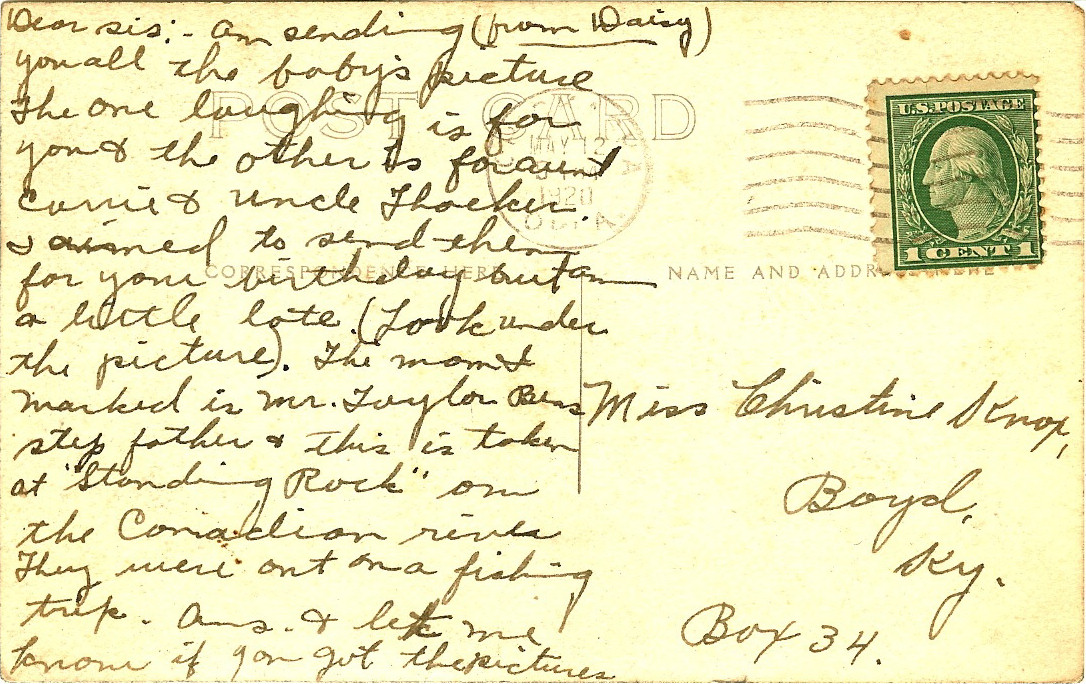 Dear sis:- am sending (from Daisy)
you all the baby's picture
The one laughing is for
you & the other is for aunt
Carrie & Uncle Thacker.
I aimed to send them
for your birthday but am
a little late. (Look under
the picture). The man I
marked is Mr. Taylor Bens
step father & this is taken
at "Standing Rock" on
the Canadian river
They were out on a fishing
trip. Ans. & let me
know if you got the pictures
POST CARD
MAY 12
1920
OKLA.
U.S. POSTAGE
1 CENT 1
CORRESPONDENCE HERE
NAME AND ADDRESS HERE
Miss Christine Knox,
Boyd,
Ky.
Box 34.